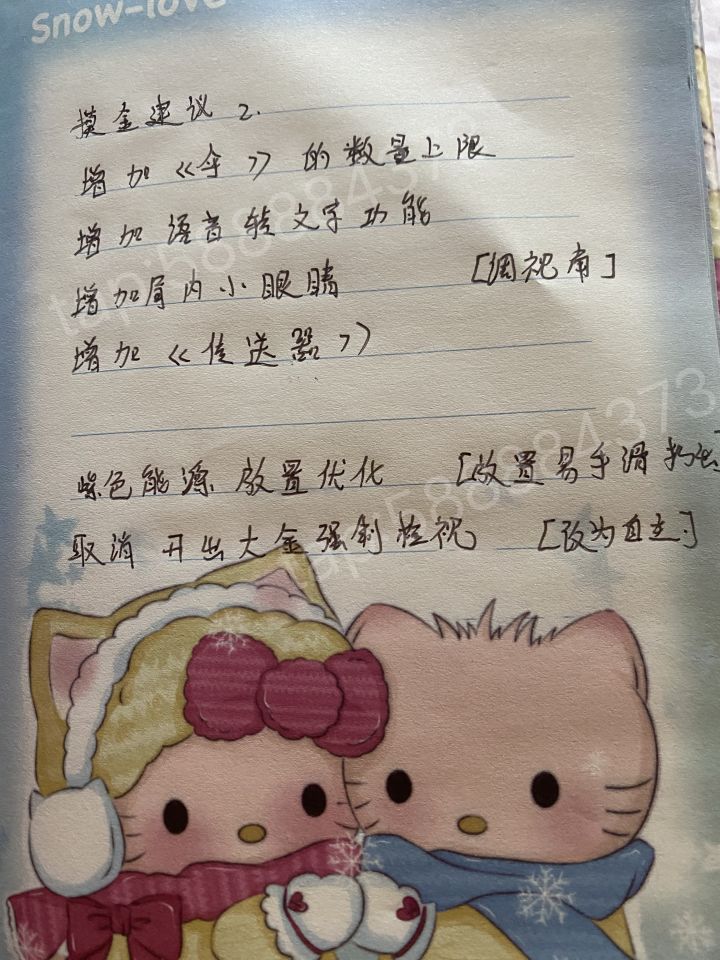 Snow-love
摸金建议 2.
增加《伞》的数量上限
增加语音转文字功能
增加局内小眼睛 [调视角]
增加《传送器》
紫色能源放置优化 [放置易手滑扔出
取消开出大金强制检视 [改为自主]
tap 588884373
tap 588884373